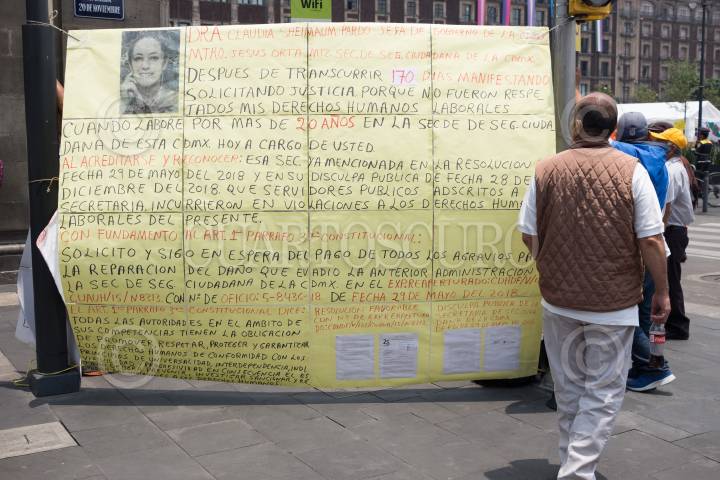 20 DE NOVIEMBRE
WiFi
DRA CLAUDIA SHEINBAUM PARDO JEFA DE GOBIERNO DE LA CDMX
MTRO. JESUS ORTA MTZ. SEC. DE SEG. CIUDADANA DE LA CDMX.
DESPUES DE TRANSCURRIR 170 DIAS MANIFESTANDO
SOLICITANDO JUSTICIA PORQUE NO FUERON RESPE
TADOS MIS DERECHOS HUMANOS LABORALES
CUANDO LABORE POR MAS DE 20 AÑOS EN LA SEC DE SEG. CIUDA
DANA DE ESTA CDMX. HOY A CARGO DE USTED.
AL ACREDITARSE Y RECONOCER: ESA SEC YA MENCIONADA EN LA RESOLUCION
FECHA 29 DE MAYO DEL 2018 Y EN SU DISCULPA PUBLICA DE FECHA 28 DE
DICIEMBRE DEL 2018. QUE SERVIDORES PUBLICOS ADSCRITOS A
SECRETARIA, INCURRIERON EN VIOLACIONES A LOS DERECHOS HUMA
LABORALES DEL PRESENTE.
CON FUNDAMENTO AL ART. 1º PARRAFO 3º CONSTITUCIONAL:
SOLICITO Y SIGO EN ESPERA DEL PAGO DE TODOS LOS AGRAVIOS
LA REPARACION DEL DAÑO QUE EVADIO LA ANTERIOR ADMINISTRACION
LA SEC DE SEG. CIUDADANA DE LA CDMX. EN EL
CON Nº DE OFICIO: 5-8436-18 DE FECHA 29 DE MAYO DEL 2018
EL ART. 1º PARRAFO 3º CONSTITUCIONAL DICE:
TODAS LAS AUTORIDADES EN EL AMBITO DE
SUS COMPETENCIAS TIENEN LA OBLIGACION
DE PROMOVER, RESPETAR, PROTEGER Y GARANTIZAR
DERECHOS HUMANOS DE CONFORMIDAD CON LOS
DE UNIVERSALIDAD, INTERDEPENDENCIA, INDI
RESOLUCION FAVORABLE
DISCULPA PUBLICA DE
SECRETARIA DE SEG.